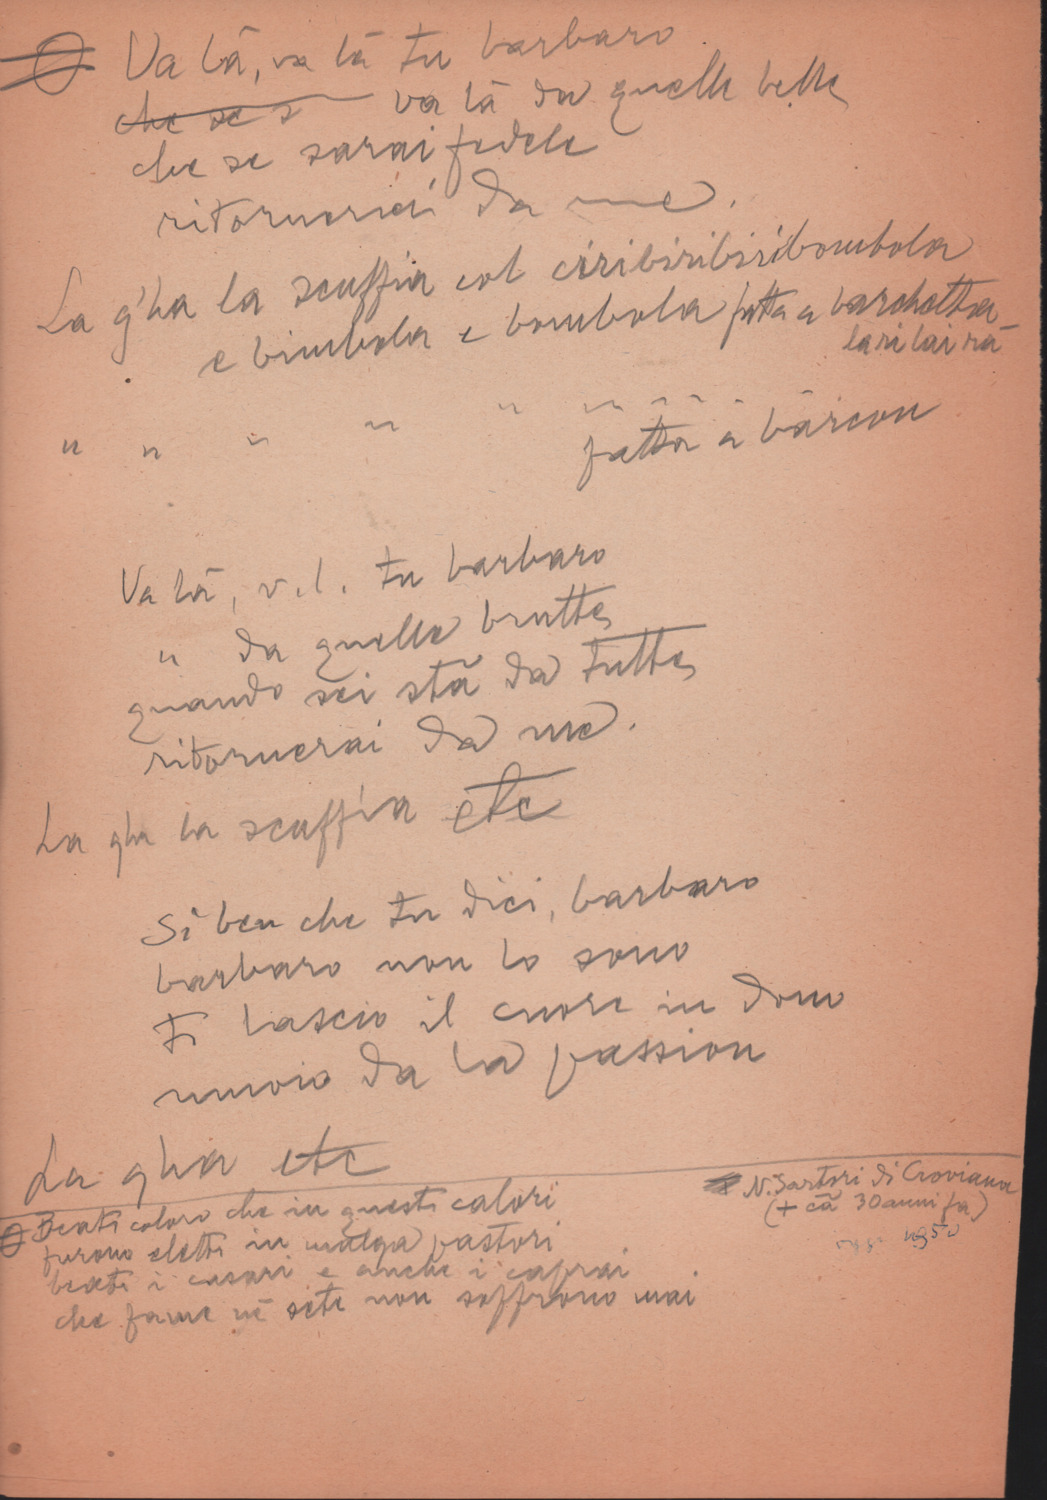 Va là, va là tu barbaro
che se s va là da quelle belle
che se sarai fedele
ritornerai da me.
La g'ha la scuffia col ciribiribiribombola
e bimbola e bombola fatta a barchetta
larilairà
" " " " " " " " "
fatta a barcon
Va là, v.l. tu barbaro
" da quelle brutte
quando sei stà da tutte
ritornerai da me.
La gha la scuffia etc
Si ben che tu dici, barbaro
barbaro non lo sono
ti lascio il cuore in dono
muoio da la passion
La gha etc
N. Sartori di Croviana
(+ ca 30 anni fa)
Beati coloro che in questi calori
furono eletti in malga pastori
beati i casari e anche i caprai
che fame nè sete non soffrono mai